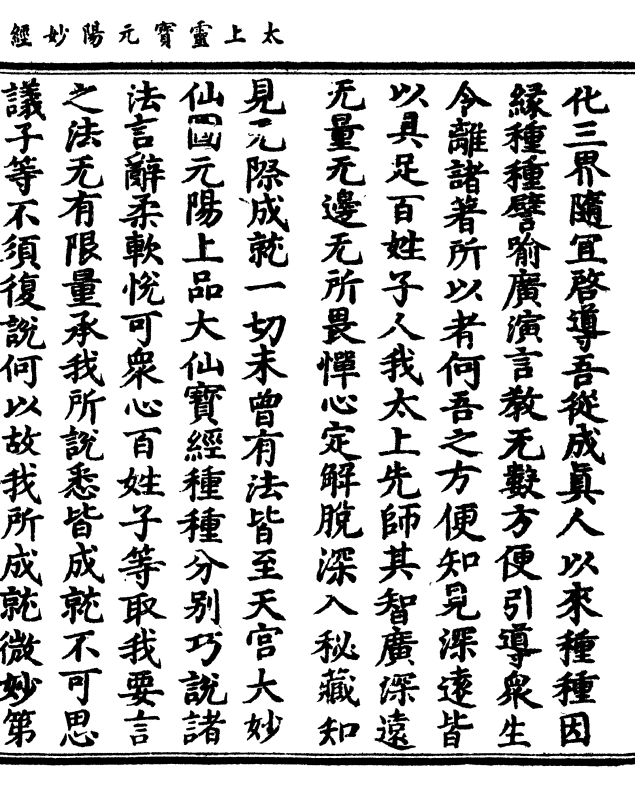 太上靈寳元陽妙經
化三界隨宜啓導吾從成眞人以來種種因
縁種種譬喻廣演言教无數方便引導衆生
令離諸著所以者何吾之方便知見深逺皆
以具足百姓子人我太上先師其智廣深遠
无量无邊无所畏憚心定解脫深入秘藏知
見元際成就一切未曾有法皆至天宫大妙
仙國元陽上品大仙寳經種種分别巧說諸
法言辭柔軟恱可衆心百姓子等取我要言
之法无有限量承我所說悉皆成就不可思
議子等不須復說何以故我所成就微妙第